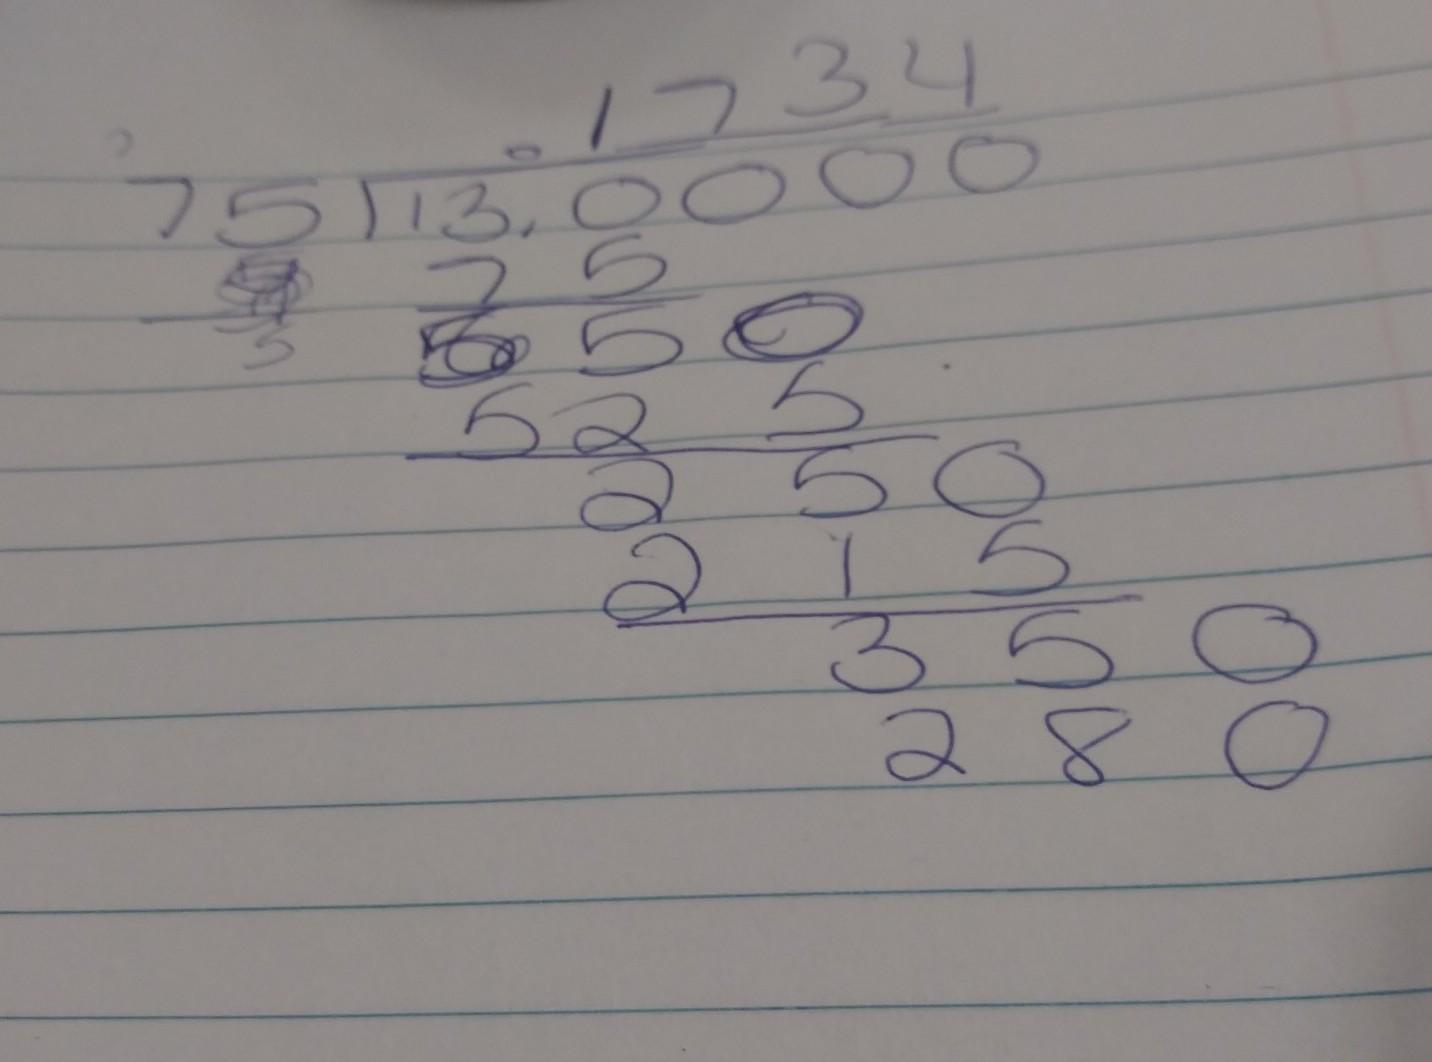 .1734
75 13.0000
75
550
3
525
250
215
350
280